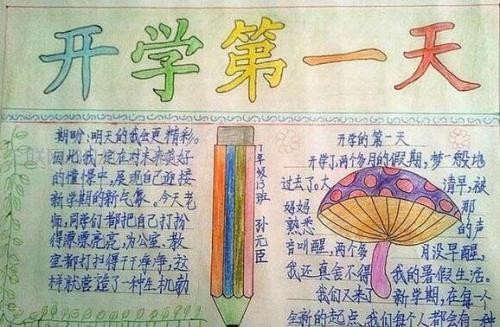 开学第一天
期盼:明天的我会更精彩。
因此,我一定在对未来美好
的憧憬中,展现自己迎接
新学期的新气象。今天老
师,同学们都把自己打扮
得漂漂亮亮,办公室、教
室都打扫得干干净净,这
样就营造了一种生机勃
年级13班 孙元臣
开学的第一天
开学了,两个多月的假期,梦一般地
过去了。大 清早,被
妈妈 那
熟悉 的声
音叫醒,两个多 月没早醒,
我还真舍不得 我的暑假生活。
我们又来了 新学期,在每一
全新的起点,我们每个人都会有一种